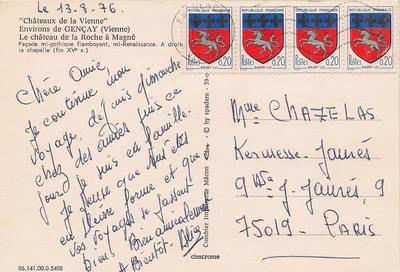 le 13-8-76.
"Châteaux de la Vienne"
Environs de GENÇAY (Vienne)
Le château de la Roche à Magné
Façade mi-gothique flamboyant, mi-Renaissance. A droite
la chapelle (fin XVe s.)
Chère Amie,
Je continue mon
voyage. depuis dimanche
chez des amis puis ce
jour je suis en famille.
Je pense que vous êtes
en pleine forme et que
vos voyages se passent
bien. Bien amicalement
A Bientôt.
86.141.00.0.5498
Combier Imprimeur Mâcon
by spadem
cimcrome
REPUBLIQUE FRANÇAISE
Postes 0,20
SAINT-LO
REPUBLIQUE FRANÇAISE
Postes 0,20
SAINT-LO
REPUBLIQUE FRANÇAISE
Postes 0,20
SAINT-LO
REPUBLIQUE FRANÇAISE
Postes 0,20
SAINT-LO
Mme CHAZELAS
Kermesse-Jaurès
9 Bis J-Jaurès, 9
75019 - PARIS